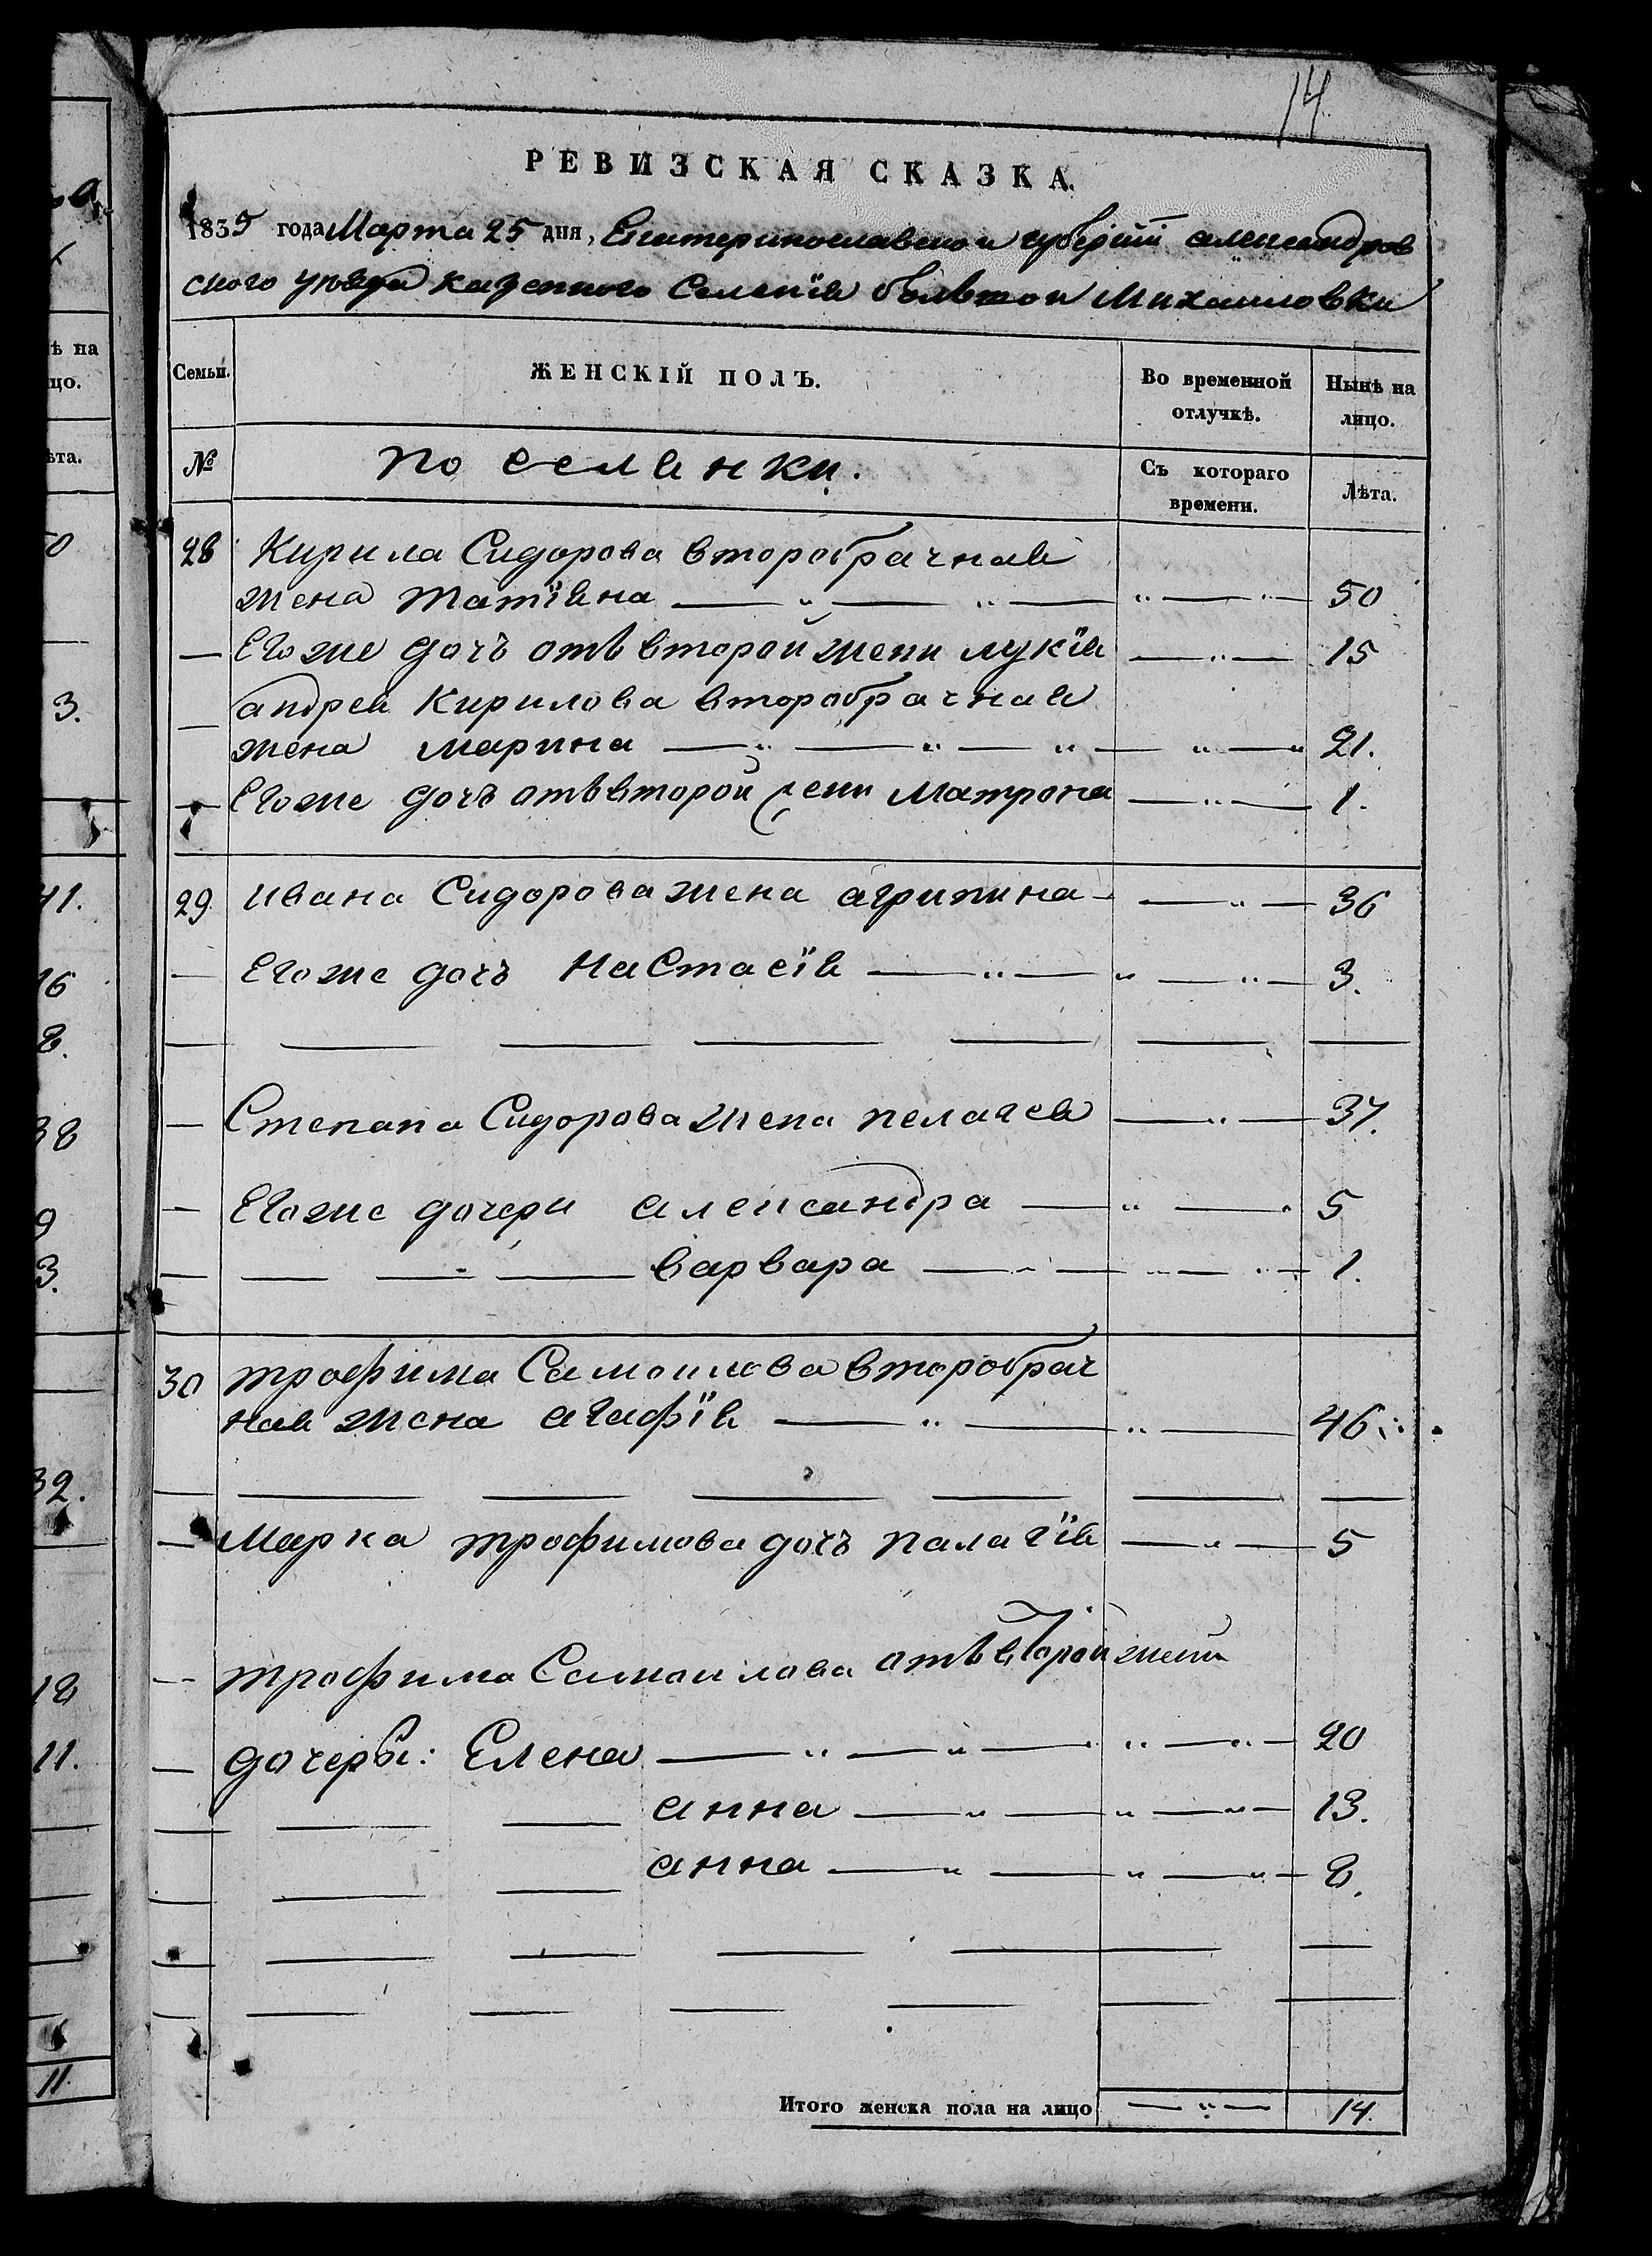 14
РЕВИЗСКАЯ СКАЗКА.
1835 года Марта 25 дня, Екатеринославской губерніи александров
ского уезда казенного Селенія большой Михаиловки
Семьи. ЖЕНСКІЙ ПОЛЪ. Во временной отлучкѣ. Нынѣ на лицо.
№ поселянки. Съ котораго времени. Лѣта.
28 Кирила Сидорова второбрачная
жена татіяна — " — " — " — " — 50
— Егоже дочъ отъ второй жени лукія — " — 15
— андрея Кирилова второбрачная
жена марина — " — " — " — " — " 21.
— Егоже дочъ отъ второй жени матрона — " — 1.
29. ивана Сидорова жена агрипина — — " — 36
— Егоже дочъ настасія — " — " — " — 3.
— — — — — — —
— Степана Сидорова жена пелагея — " — 37.
— Егоже дочери александра — " — " 5
— — — — варвара — " — " — " — 1.
30 трофима Самоилова второбрач
ная жена агафія — " — " — 46.
— — — — — — —
— Марка трофимова дочъ палагія — " — 5
— трофима Самоилова отъ второй жени
— дочеры: Елена — " — " — " — " — 20
— — — анна — " — " — " — 13.
— — — анна — " — " — " — 8.
— — — — — — —
— — — — — — —
Итого женска пола на лицо — " — 14.
ѣ на
цо.
ѣта.
0
3.
41.
16
8.
38
9
3.
32.
18
11.
11.